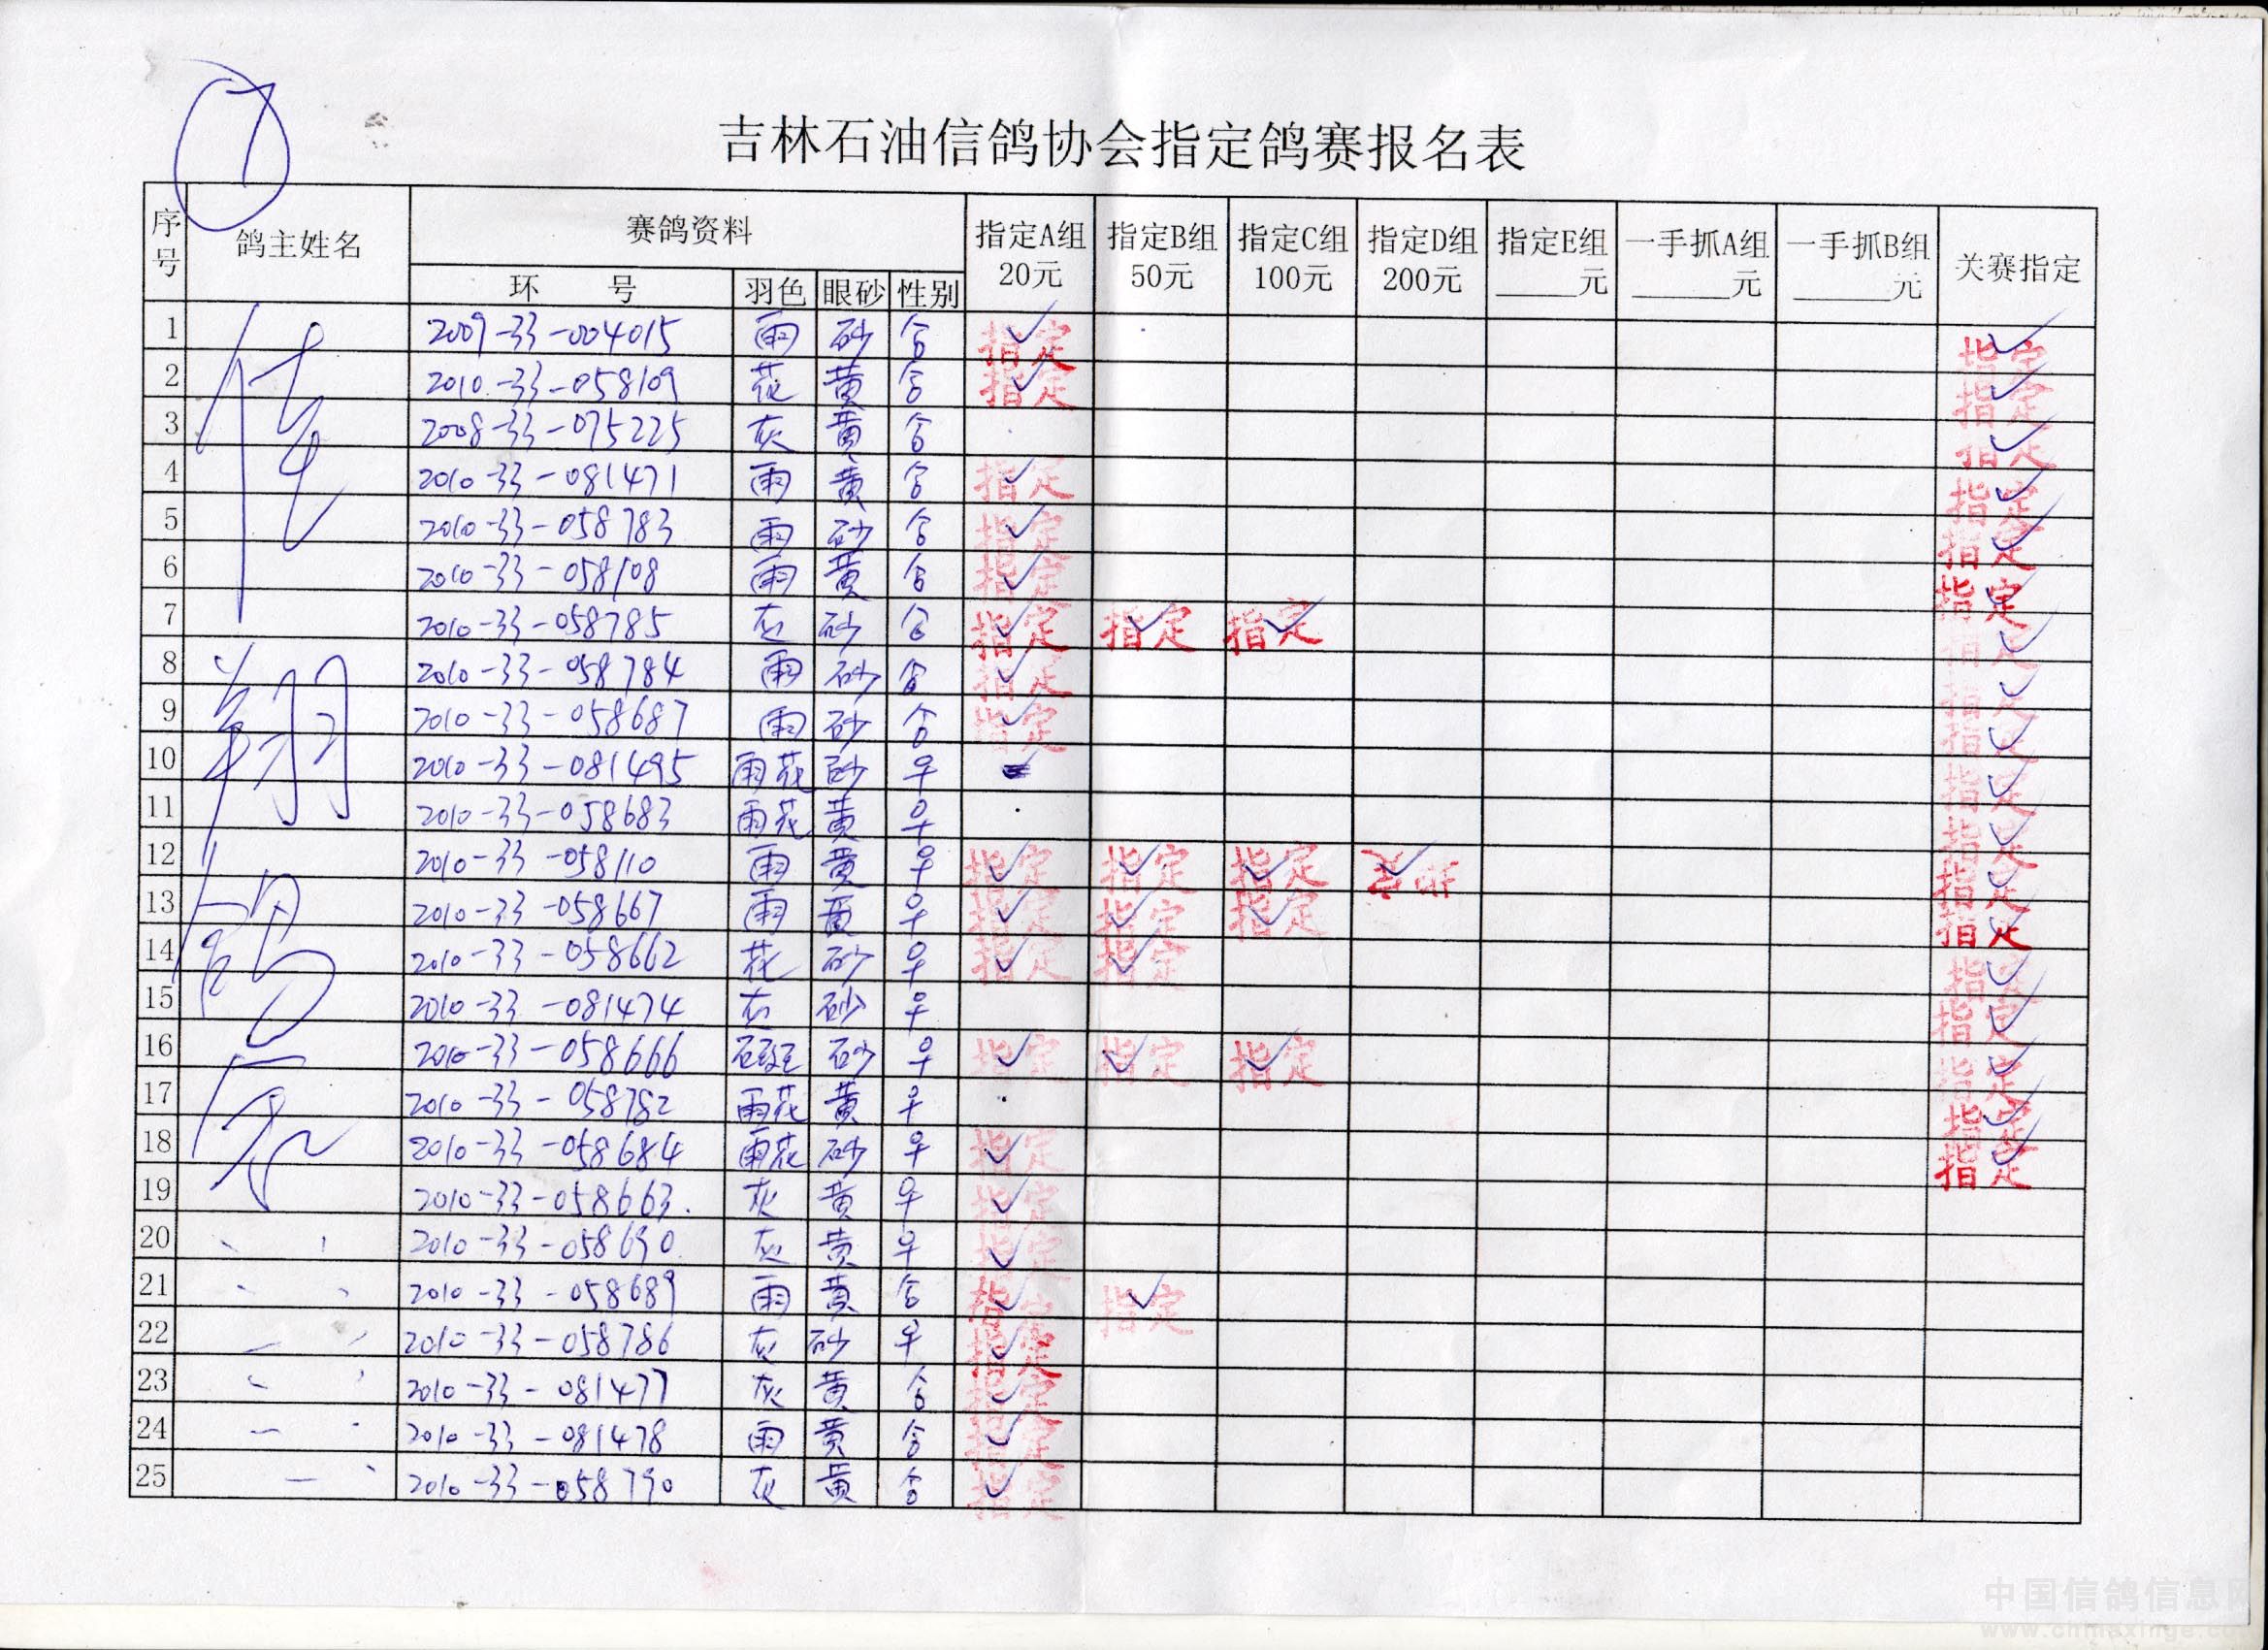 吉林石油信鸽协会指定鸽赛报名表
序号 鸽主姓名 赛鸽资料 指定A组 20元 指定B组 50元 指定C组 100元 指定D组 200元 指定E组 ____元 一手抓A组 ____元 一手抓B组 ____元 关赛指定
环 号 羽色 眼砂 性别
1 2009-33-004015 雨 砂 合 指定 ✓ 指定 ✓
2 2010-33-058109 花 黄 合 指定 ✓ 指定 ✓
3 2008-33-075225 灰 黄 合 指定 ✓
4 2010-33-081471 雨 黄 合 指定 ✓ 指定 ✓
5 2010-33-058783 雨 砂 合 指定 ✓ 指定 ✓
6 2010-33-058108 雨 黄 合 指定 ✓ 指定 ✓
7 2010-33-058785 灰 砂 合 指定 ✓ 指定 ✓ 指定 ✓ 指定 ✓
8 2010-33-058784 雨 砂 合 指定 ✓ 指定 ✓
9 2010-33-058687 雨 砂 合 指定 ✓ 指定 ✓
10 2010-33-081495 雨花 砂 早 指定 ✓
11 2010-33-058683 雨花 黄 早 指定 ✓
12 2010-33-058110 雨 黄 早 指定 ✓ 指定 ✓ 指定 ✓ 指定 ✓ 指定 ✓
13 2010-33-058667 雨 黄 早 指定 ✓ 指定 ✓ 指定 ✓ 指定 ✓
14 2010-33-058662 花 砂 早 指定 ✓ 指定 ✓ 指定 ✓
15 2010-33-081474 灰 砂 早 指定 ✓
16 2010-33-058666 砂 早 指定 ✓ 指定 ✓ 指定 ✓ 指定 ✓
17 2010-33-058782 雨花 黄 早 指定 ✓
18 2010-33-058684 雨花 砂 早 指定 ✓ 指定 ✓
19 2010-33-058663. 灰 黄 早 指定 ✓
20 2010-33-058690 灰 黄 早 指定 ✓
21 2010-33-058689 雨 黄 合 指定 ✓ 指定 ✓
22 2010-33-058786 灰 砂 早 指定 ✓
23 2010-33-081477 灰 黄 合 指定 ✓
24 2010-33-081478 雨 黄 合 指定 ✓
25 2010-33-058790 灰 黄 合 指定 ✓
中国信鸽信息网
www.chinaxinge.co